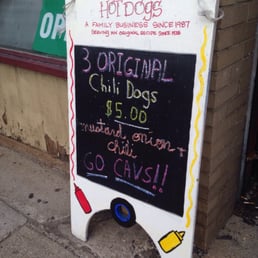 OP
HOT DOGS
A FAMILY BUSINESS SINCE 1987
SERVING AN ORIGINAL RECIPE SINCE 1938
3 ORIGINAL
Chili Dogs
$5.00
mustard, onion +
chili
GO CAVS!!